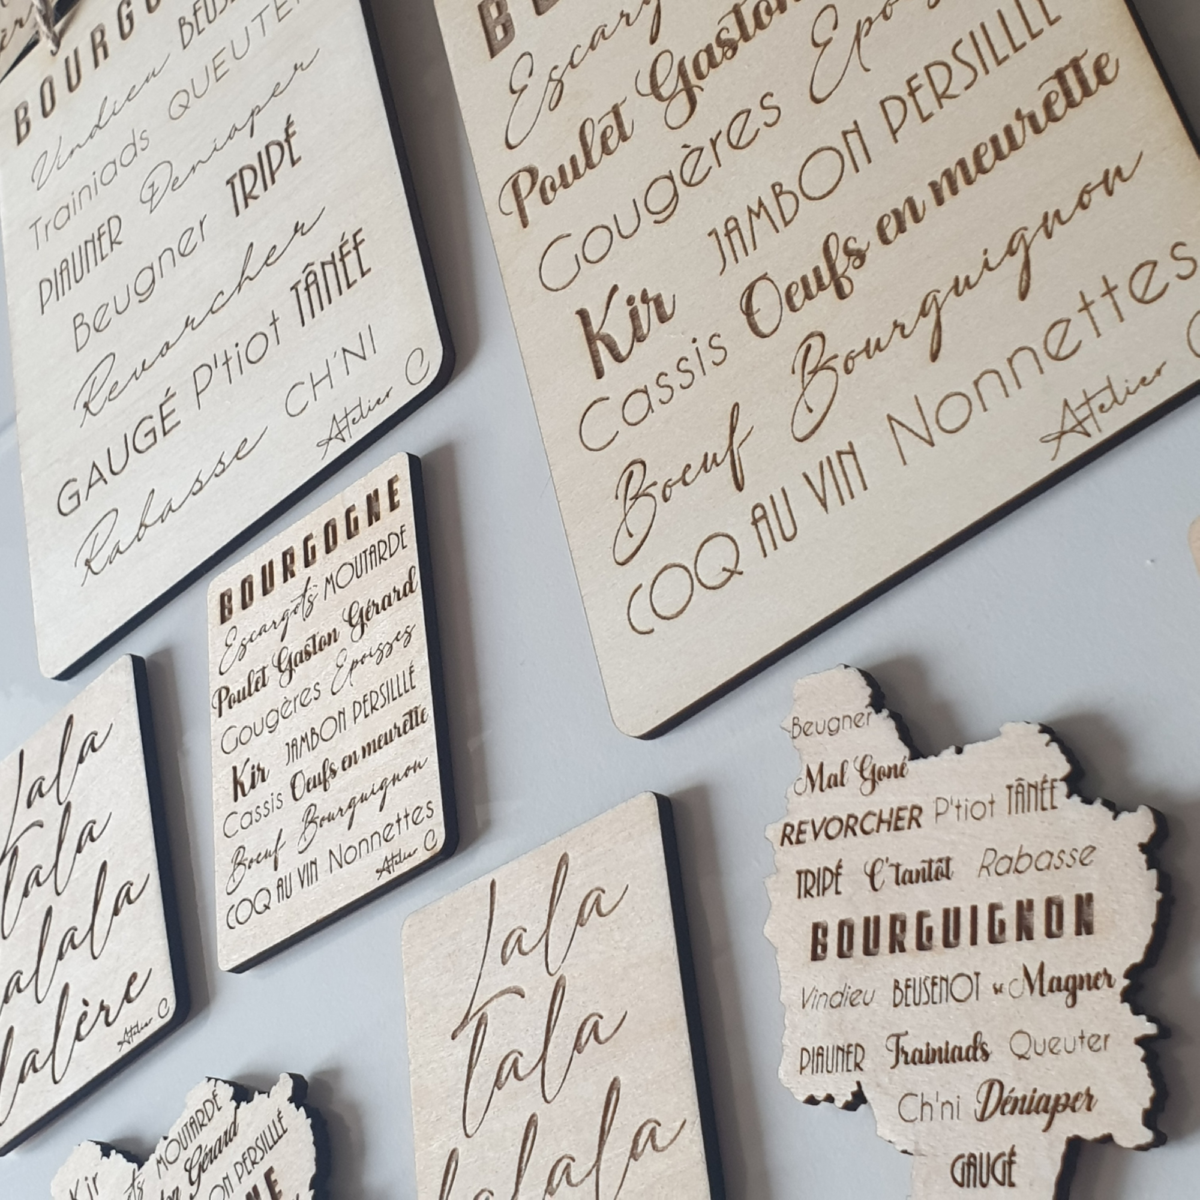 Vindieu
Trainiads QUEUTE
PIAUNER Deniaper
Beugner TRIPÉ
Revorcher
GAUGÉ P'tiot TÂNÉE
Rabasse CH'NI
Atelier C
Poulet Gaston
Gougères
Kir JAMBON PERSILLLÉ
Cassis Oeufs en meurette
Boeuf Bourguignon
COQ AU VIN Nonnettes
Atelier
BOURGOGNE
Escargots MOUTARDE
Poulet Gaston Gérard
Gougères Epoisses
Kir JAMBON PERSILLLÉ
Cassis Oeufs en meurette
Boeuf Bourguignon
COQ AU VIN Nonnettes
Atelier C
Lala
lala
lalala
lalère
Atelier C
Lala
lala
lalala
Beugner
Mal Goné
REVORCHER P'tiot TÂNÉE
TRIPÉ C'tantôt Rabasse
BOURGUIGNON
Vindieu BEUSENOT se Magner
PIAUNER Trainiads Queuter
Ch'ni Déniaper
GAUGÉ
MOUTARDE
Kir Gérard
PERSILLLÉ